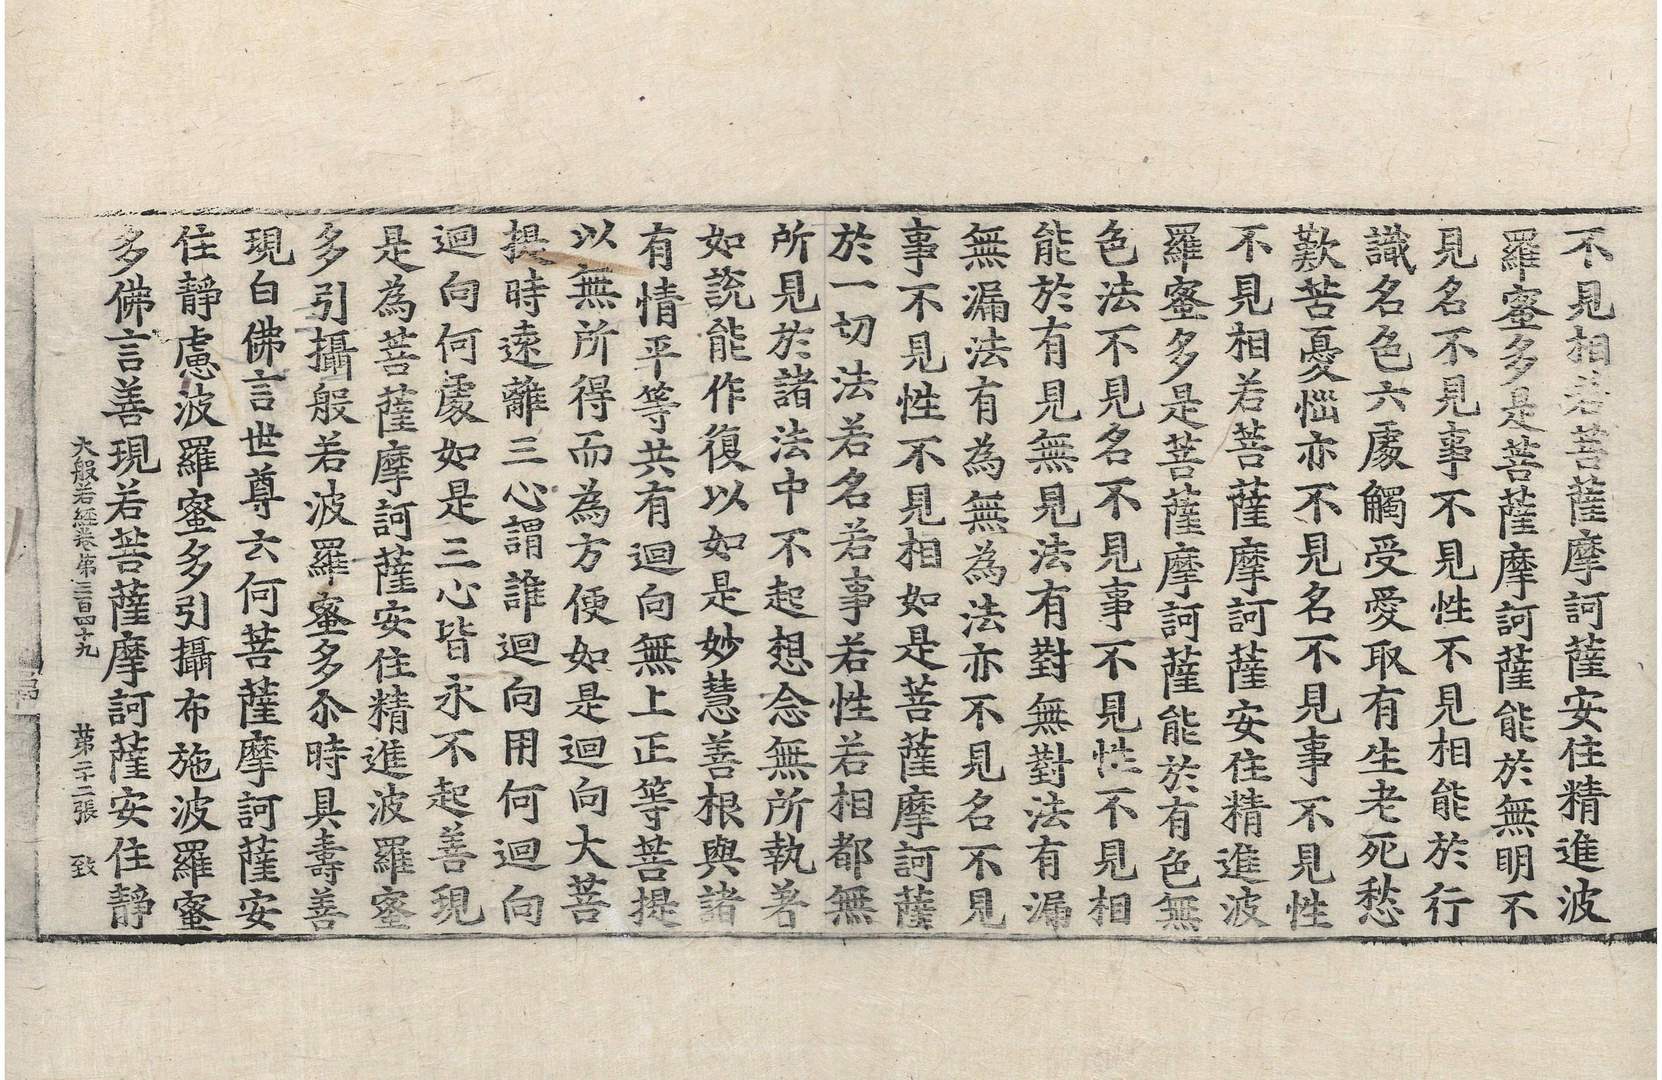 不見相若菩薩摩訶薩安住精進波
羅蜜多是菩薩摩訶薩能於無明不
見名不見事不見性不見相能於行
識名色六處觸受愛取有生老死愁
歎苦憂惱亦不見名不見事不見性
不見相若菩薩摩訶薩安住精進波
羅蜜多是菩薩摩訶薩能於有色無
色法不見名不見事不見性不見相
能於有見無見法有對無對法有漏
無漏法有為無為法亦不見名不見
事不見性不見相如是菩薩摩訶薩
於一切法若名若事若性若相都無
所見於諸法中不起想念無所執著
如說能作復以如是妙慧善根與諸
有情平等共有迴向無上正等菩提
以無所得而為方便如是迴向大菩
提時遠離三心謂誰迴向用何迴向
迴向何處如是三心皆永不起善現
是為菩薩摩訶薩安住精進波羅蜜
多引攝般若波羅蜜多尒時具壽善
現白佛言世尊云何菩薩摩訶薩安
住靜慮波羅蜜多引攝布施波羅蜜
多佛言善現若菩薩摩訶薩安住靜
大般若經卷第三百四十九 第二十二張 致